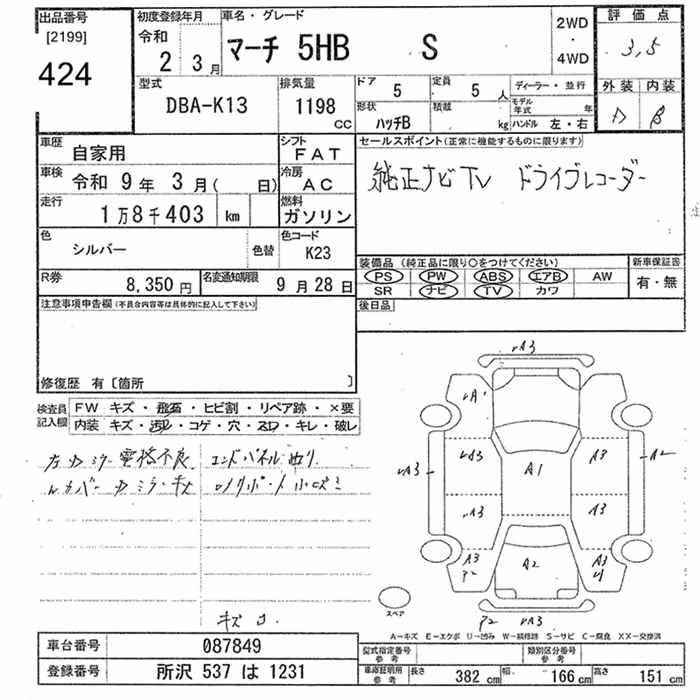 出品番号 [2199] 424
初度登録年月 令和 2 3月
車名・グレード マーチ 5HB S
2WD・4WD
評価点 3,5
型式 DBA-K13
排気量 1198 CC
ドア 5 定員 5人
ディーラー・並行
形状 ハッチB 積載 kg
モデル年式 年
ハンドル 左・右
外装 内装
D B
車歴 自家用
シフト FAT
車検 令和 9年 3月( 日)
冷房 AC
走行 1万8千403 km
燃料 ガソリン
色 シルバー 色替
色コード K23
R券 8,350円
名変通知期限 9月28日
セールスポイント(正常に機能するものに限ります)
純正ナビTV ドライブレコーダー
装備品 (純正品に限り○をつけてください)
PS PW ABS エアB AW
SR ナビ TV カワ
新車保証書 有・無
注意事項申告欄(不具合内容等は具体的に記入して下さい)
後日品
修復歴 有〔箇所 〕
検査員記入欄
FW キズ・飛石・ヒビ割・リペア跡・×要
内装 キズ・汚レ・コゲ・穴・スレ・キレ・破レ
エンドパネル
キズ
A3
A1
A3 A3 A3 A2
A1
A3 A3
A3 P2 A2 A3
スペア
P2 A3
A-キズ E-エクボ U-凹み W-補修跡 S-サビ C-腐食 XX-交換済
車台番号 087849
登録番号 所沢 537 は 1231
型式指定番号 参考 類別区分番号 参考
車検証明所 参考 長さ 382 cm 幅 166 cm 高さ 151 cm